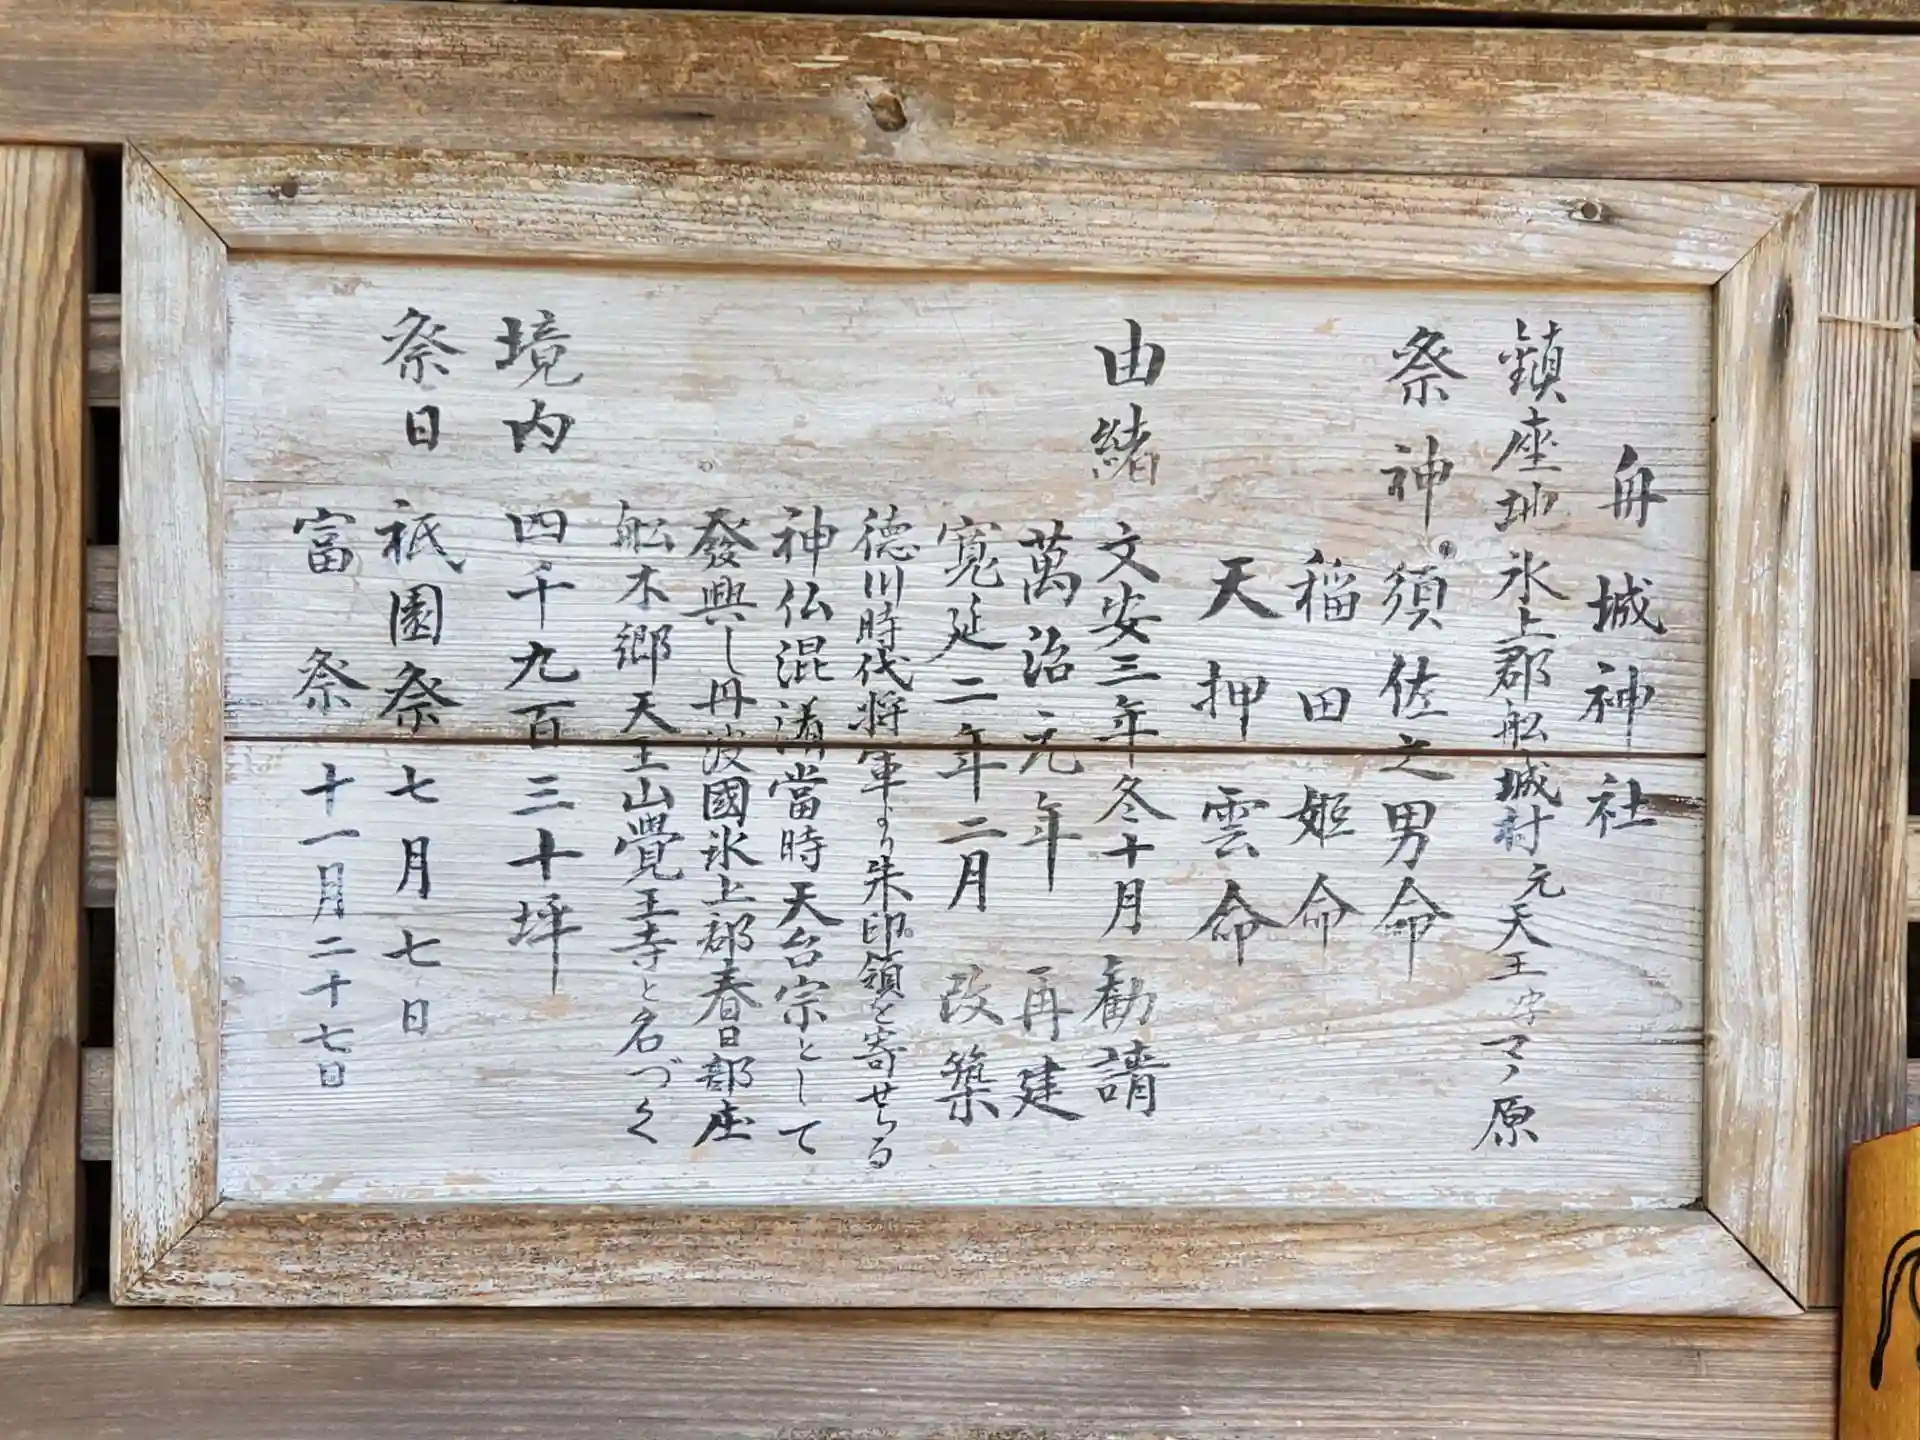 舟城神社
鎮座地 氷上郡舩城村 元天王字マノ原
祭神 須佐之男命
稲田姫命
天押雲命
由緒 文安三年冬十月 勧請
萬治元年 再建
寛延二年二月 改築
徳川時代将軍より朱印領を寄せらる
神仏混淆當時天台宗として
發興し丹波國氷上郡春日部庄
舩木郷天王山覺王寺と名づく
境内 四千九百三十坪
祭日 祇園祭 七月七日
富祭 十一月二十七日